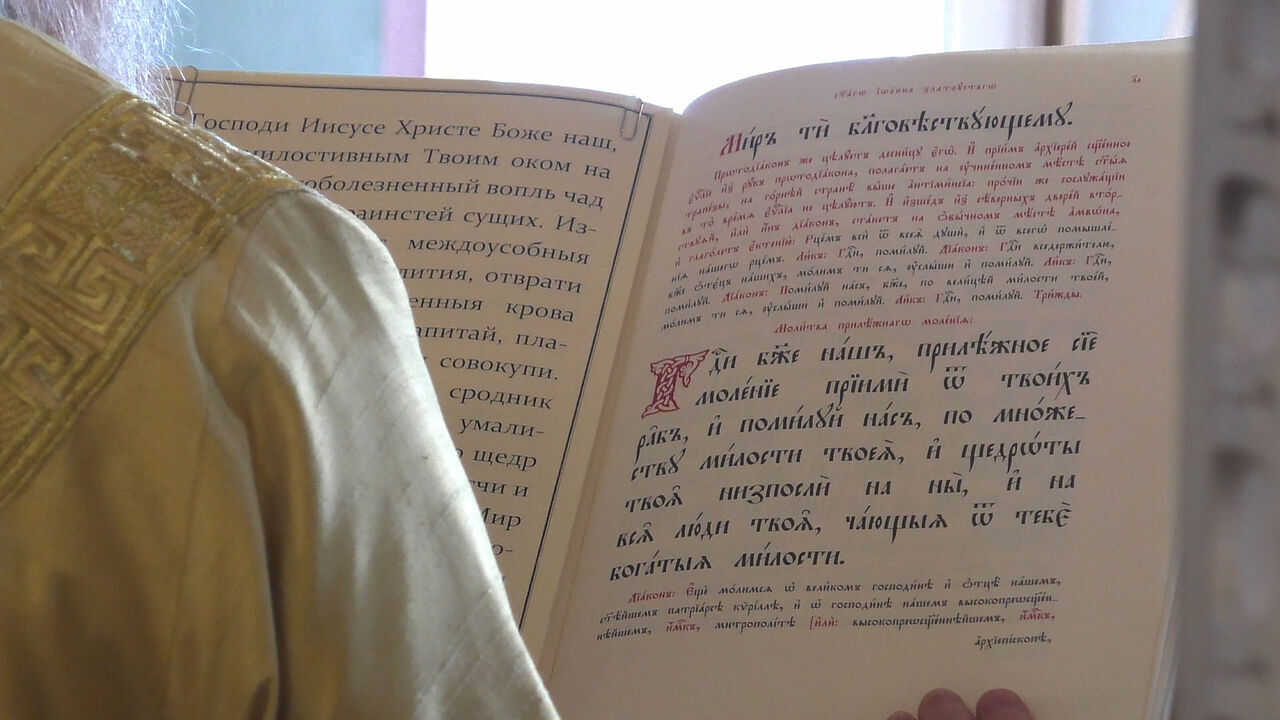 Господи Иисусе Христе Боже наш,
милостивным Твоим оком на
болезненный вопль чад
сущих. Из-
междоусобныя
отврати
крова
пла-
совокупи.
сродник
умали-
щедр
и
Мир
ст҃а́гѡ і҆ѡа́нна златоꙋ́стагѡ
Ми́ръ тѝ бл҃говѣствꙋ́ющемꙋ.
Прѡтодїа́конъ же цѣлꙋ́етъ десни́цꙋ є҆гѡ̀. И҆ прїи́мъ а҆рхїере́й сщ҃е́нное
є҆ѵⷢ҇лїе и҆з̾ рꙋ́къ прѡтодїа́кона, полага́етъ на ᲂу҆чине́нномъ мѣ́стѣ ст҃ы́ѧ
трапе́зы, на го́рнѣй странѣ̀ вы́ше а҆нтїмі́нсїа: про́чїи же сослꙋжа́щїи
въ то̀ вре́мѧ є҆ѵⷢ҇лїа не цѣлꙋ́ютъ. И҆ и҆зше́дъ и҆з̾ сѣ́верныхъ двере́й втор-
ствꙋѧ́й, и҆лѝ и҆́нъ дїа́конъ, ста́нетъ на ѻ҆бы́чномъ мѣ́стѣ а҆мвѡ́на,
и҆ глаго́летъ є҆ктенїю̀: Рце́мъ всѝ ѿ всеѧ̀ дꙋшѝ, и҆ ѿ всегѡ̀ помышле́-
нїѧ на́шегѡ рце́мъ. Ли́къ: Гдⷭ҇и, поми́лꙋй. Дїа́конъ: Гдⷭ҇и вседержи́телю,
бж҃е ѻ҆тє́цъ на́шихъ, мо́лимъ ти сѧ, ᲂу҆слы́ши и҆ поми́лꙋй. Ли́къ: Гдⷭ҇и,
поми́лꙋй. Дїа́конъ: Поми́лꙋй на́съ, бж҃е, по вели́цѣй ми́лости твое́й,
мо́лимъ ти сѧ, ᲂу҆слы́ши и҆ поми́лꙋй. Ли́къ: Гдⷭ҇и, поми́лꙋй. Три́жды.
Моли́тва прилѣ́жнагѡ моле́нїѧ:
Гдⷭ҇и бж҃е на́шъ, прилѣ́жное сїѐ
моле́нїе прїимѝ ѿ твои́хъ
ра̑бъ, и҆ поми́лꙋй на́съ, по мно́же-
ствꙋ ми́лости твоеѧ̀, и҆ щедрѡ́ты
твоѧ̑ низпослѝ на ны̀, и҆ на
всѧ̑ лю́ди твоѧ̑, ча́ющыѧ ѿ тебє̀
бога́тыѧ ми́лости.
Дїа́конъ: Є҆щѐ мо́лимсѧ ѡ҆ вели́комъ господи́нѣ и҆ ѻ҆тцѣ̀ на́шемъ,
ст҃ѣ́йшемъ патрїа́рсѣ кѷрі́ллѣ, и҆ ѡ҆ господи́нѣ на́шемъ высокопреѡсщ҃е́н-
нѣйшемъ, и҆́м҃къ, митрополі́тѣ [и҆лѝ: высокопреѡсщ҃е́ннѣйшемъ, и҆́м҃къ,
а҆рхїепі́скопѣ,